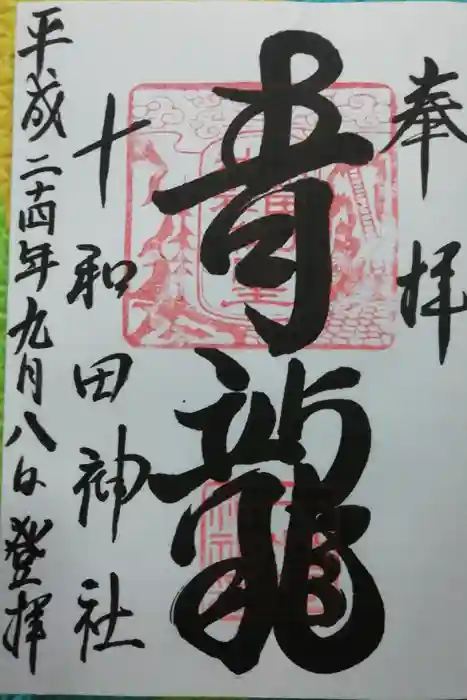 奉拝
青龍
十和田神社
平成二十四年九月八日登拝